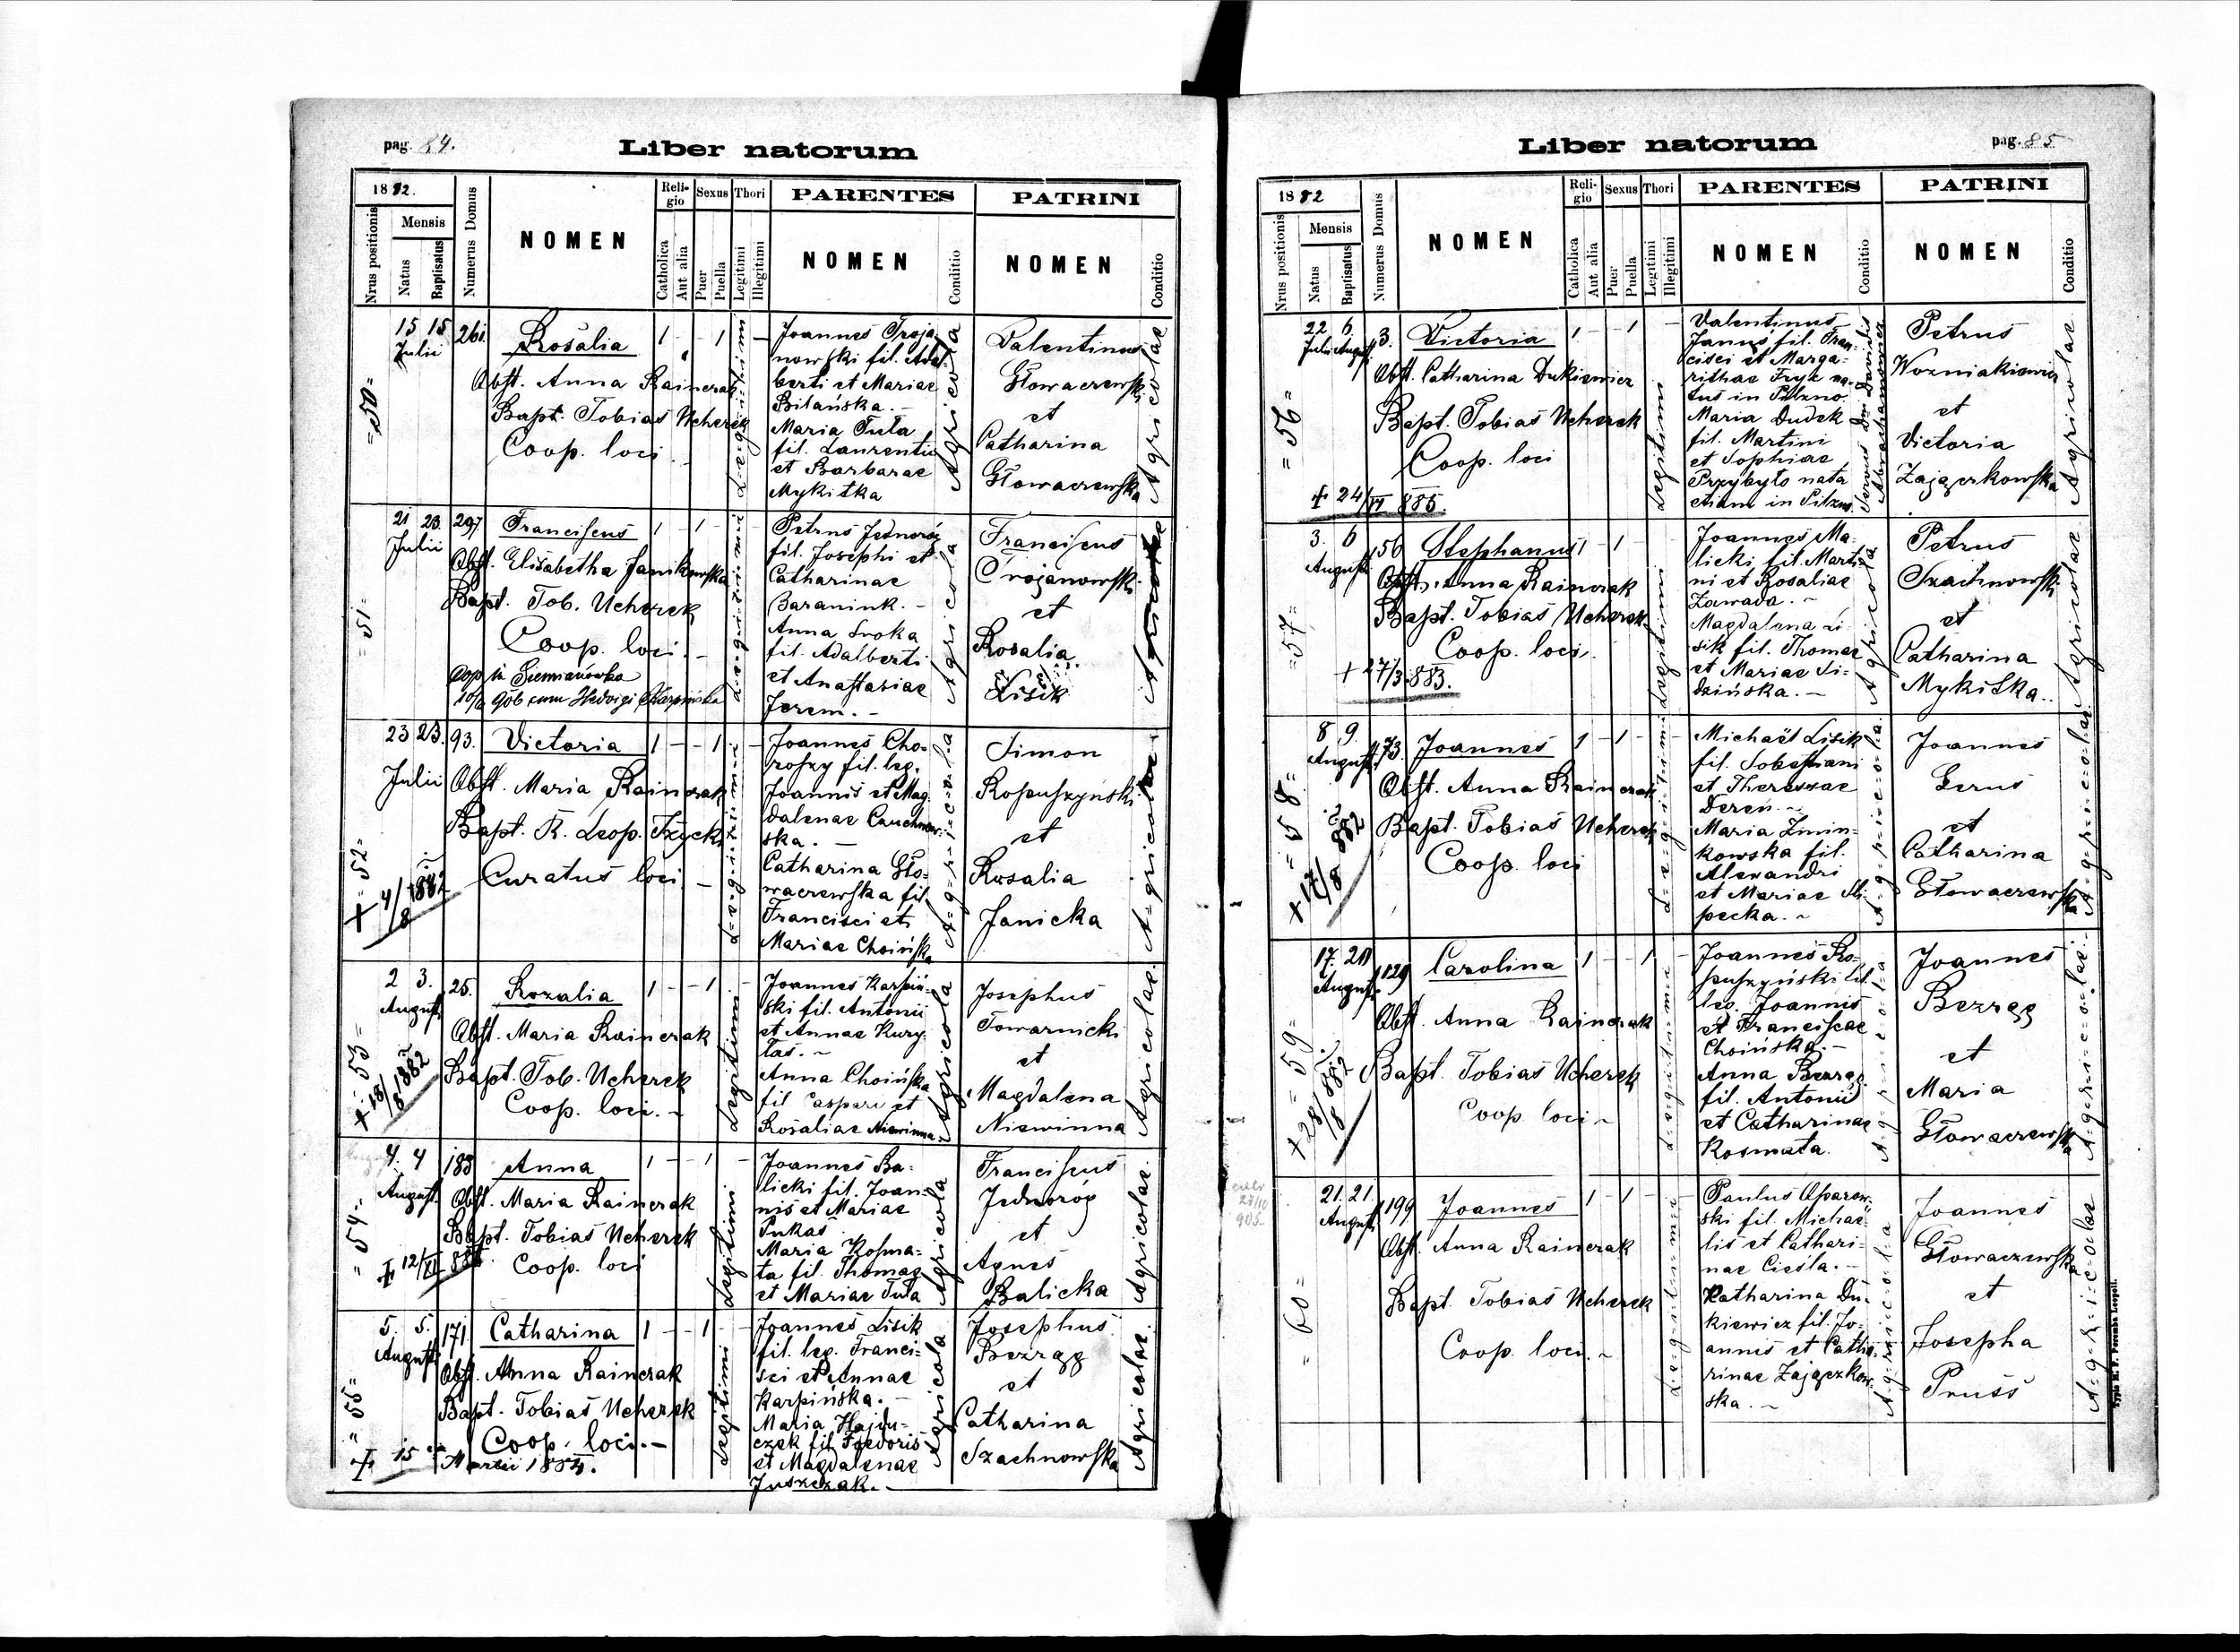 pag. 84.
Liber natorum
1882.
Nrus positionis
Mensis
Natus
Baptisatus
Numerus Domus
NOMEN
Religio
Catholica
Aut alia
Sexus
Puer
Puella
Thori
Legitimi
Illegitimi
PARENTES
NOMEN
Conditio
PATRINI
NOMEN
Conditio
=50=
15 15
Julii
261.
Rosalia
1 - - 1 -
Obst. Anna Rainczak
Bapt. Tobias Ucherek
Coop. loci
Legitimi
Joannes Troja
nowski fil. Adal-
berti et Mariae
Bilańska. -
Maria Tuła
fil. Laurentii
et Barbarae
Mykitka
Agricola
Valentinus
Głowaczewski
et
Catharina
Głowaczewska
Agricolae
=51=
21 23.
Julii
297
Franciscus
1 - 1 -
Obst. Elisabetha Janikowska
Bapt. Tob. Ucherek
Coop. loci. -
Cop in Siemianówka
Legitimi
Petrus Jednoróg
fil. Josephi et
Catharinae
Baranink. -
Anna Sroka
fil. Adalberti
et Anastasiae
Jerem. -
Agricola
Franciscus
Trojanowski
et
Rosalia
Lisik
Agricolae
=52=
23 23.
Julii
93.
Victoria
1 - - 1 -
Obst. Maria Rainczak
Bapt. R. Leop. Tzycki
Curatus loci -
+ 4/8 1882
Legitimi
Joannes Cho-
roszy fil. leg.
Joannis et Mag
dalenae Cauchnow-
ska. -
Catharina Gło-
waczewska fil.
Francisci et
Mariae Choińska
Agricola
Simon
Roszuszynski
et
Rosalia
Janicka
Agricolae
=53=
2 3.
August.
25.
Rozalia
1 - - 1 -
Obst. Maria Rainczak
Bapt. Tob. Ucherek
Coop. loci. -
+ 18/8 1882
Legitimi
Joannes Karpiń-
ski fil. Antonii
et Annae Kury-
łas. ~
Anna Choińska
fil Caspari et
Rosaliae Niewinna
Agricola
Josephus
Towarnicki
et
Magdalena
Niewinna
Agricolae
=54=
4. 4
August.
188
Anna
1 - - 1 -
Obst. Maria Rainczak
Bapt. Tobias Ucherek
Coop. loci
Legitimi
Joannes Ba-
licki fil. Joan-
nis et Mariae
Pukas
Maria Kosma-
ta fil. Thomae
et Mariae Tuła
Agricola
Franciscus
Jednoróg
et
Agnes
Balicka
Agricolae
=55=
5. 5.
August.
171
Catharina
1 - - 1 -
Obst. Anna Rainczak
Bapt. Tobias Ucherek
Coop. loci. -
Legitimi
Joannes Lisik
fil. leg. Franci-
sci et Annae
Karpińska. -
Maria Hajdu-
czek fil Foedoris
et Magdalenae
Juszczak. -
Agricola
Josephus
Bezręg
et
Catharina
Szachnowska
Agricolae
Liber natorum
pag. 85
1882
Nrus positionis
Mensis
Natus
Baptisatus
Numerus Domus
NOMEN
Religio
Catholica
Aut alia
Sexus
Puer
Puella
Thori
Legitimi
Illegitimi
PARENTES
NOMEN
Conditio
PATRINI
NOMEN
Conditio
=56=
22 6.
Julii August.
3.
Victoria
1 - - 1 -
Obst. Catharina Dukiewicz
Bapt. Tobias Ucherek
Coop. loci
Legitimi
Valentinus
Janus fil. Fran-
cisci et Marga-
rithae Fryz na-
tus in Pilzno.
Maria Dudek
fil. Martini
et Sophiae
Przybyło nata
etiam in Pilzno
Petrus
Wozniakiewicz
et
Victoria
Zajączkowska
Agricolae
=57=
3. 6
August.
56
Stephanus
1 - 1 -
Obst. Anna Rainczak
Bapt. Tobias Ucherek
Coop. loci.
+ 27/3 883.
Legitimi
Joannes Ma-
licki fil. Marti-
ni et Rosaliae
Zawada. ~
Magdalena Li-
sik fil. Thomae
et Mariae Si-
dzińska. -
Agricola
Petrus
Szachnowski
et
Catharina
Mykitka..
Agricolae
=58=
8 9.
August.
173.
Joannes
1 - 1 -
Obst. Anna Rainczak
Bapt. Tobias Ucherek
Coop. loci
+ 17/8 882
Legitimi
Michaël Lisik
fil. Sobestiani
et Theressae
Dereń. ~
Maria Zmin-
kowska fil.
Alexandri
et Mariae Sli-
pecka. ~
Agricola
Joannes
Gerus
et
Catharina
Głowaczewska
Agricolae
=59=
17. 20
August.
129
Carolina
1 - - 1 -
Obst. Anna Rainczak
Bapt. Tobias Ucherek
Coop. loci ~
+ 28/8 882
Legitimi
Joannes Ro-
szuszyński fil.
leg. Joannis
et Franciscae
Choińska. -
Anna Bezręg
fil. Antonii
et Catharinae
Kosmata.
Agricola
Joannes
Bezręg
et
Maria
Głowaczewska
Agricolae
=60=
21. 21.
August.
199
Joannes
1 - 1 -
Obst. Anna Rainczak
Bapt. Tobias Ucherek
Coop. loci. ~
Legitimi
Paulus Oparow-
ski fil. Michaë-
lis et Cathari-
nae Cieśla. -
Katharina Du-
kiewicz fil. Jo-
annis et Catha-
rinae Zajączkow-
ska. ~
Agricola
Joannes
Głowaczewski
et
Josepha
Pruss
Agricolae